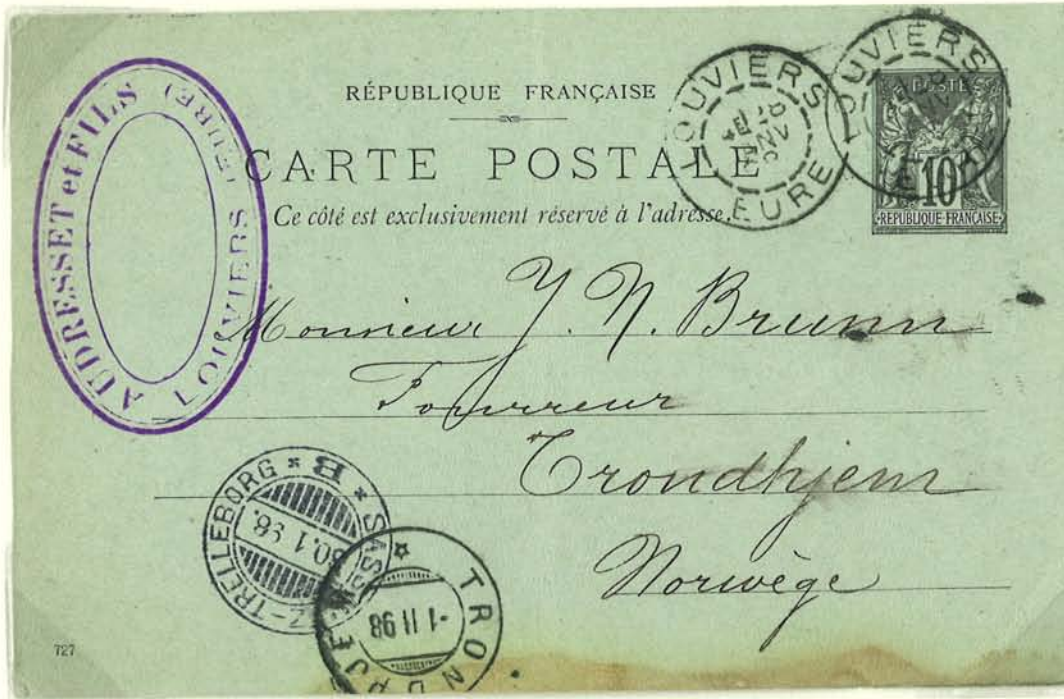 AUDRESSET et FILS
LOUVIERS (EURE)
RÉPUBLIQUE FRANÇAISE
CARTE POSTALE
Ce côté est exclusivement réservé à l'adresse.
LOUVIERS
EURE
LOUVIERS
POSTES
10
REPUBLIQUE FRANÇAISE
Monsieur J. N. Brunn
Fourreur
Trondhjem
Norvège
B
30.1 98.
-TRELLEBORG
TRONDHJEM
-1 II 98
727